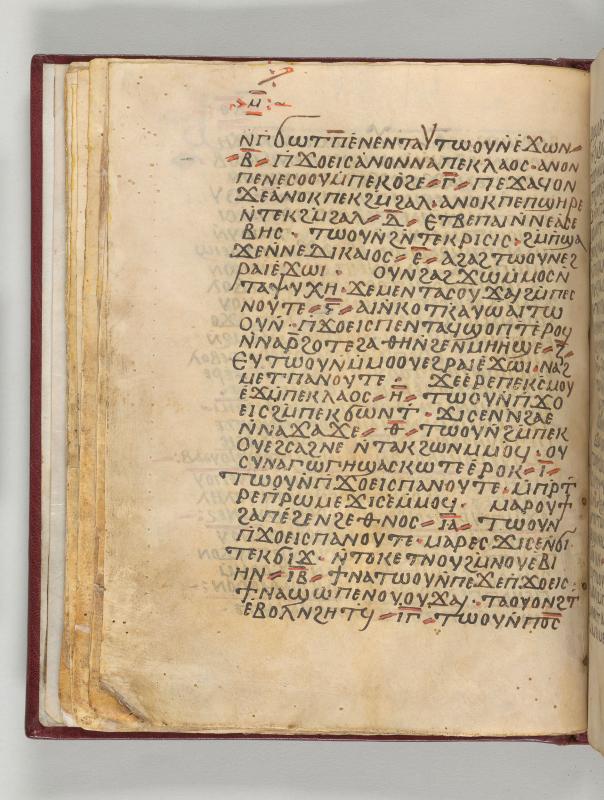 ⲙ
ⲛⲅϭⲱⲧⲡⲉⲛⲉⲛⲧⲁⲩⲧⲱⲟⲩⲛⲉϫⲱⲛ
ⲃ · ⲡϫⲟⲉⲓⲥ ⲁⲛⲟⲛ ⲛⲁ ⲡⲉⲕⲗⲁⲟⲥ · ⲁⲛⲟⲛ
ⲡⲉⲛⲉⲥⲟⲟⲩⲙⲡⲉⲕⲟϩⲉ ⲅ · ⲡⲉϫⲁϥⲟⲛ
ϫⲉⲁⲛⲟⲕⲡⲉⲕϩⲙϩⲁⲗ · ⲁⲛⲟⲕⲡⲉⲡϣⲏⲣⲉ
ⲛⲧⲉⲕϩⲙϩⲁⲗ ⲇ · ⲉⲧⲃⲉⲡⲁⲓⲛⲛⲉⲁⲥⲉ
ⲃⲏⲥ · ⲧⲱⲟⲩⲛϩⲛⲧⲉⲕⲣⲓⲥⲓⲥ · ϩⲙⲡϣⲁ
ϫⲉⲛⲛⲉⲇⲓⲕⲁⲓⲟⲥ ⲉ · ⲁϩⲁϩⲧⲱⲟⲩⲛⲉϩ
ⲣⲁⲓⲉϫⲱⲓ · ⲟⲩⲛϩⲁϩϫⲱⲙⲙⲟⲥⲛ
ⲧⲁⲯⲩⲭⲏ · ϫⲉⲙⲉⲛⲧⲁⲥⲟⲩϫⲁⲓϩⲙⲡⲉⲥ
ⲛⲟⲩⲧⲉ ⲋ · ⲁⲓⲛⲕⲟⲧⲕⲁⲩⲱⲁⲓⲧⲱ
ⲟⲩⲛ · ⲡϫⲟⲉⲓⲥⲡⲉⲛⲧⲁϥϣⲟⲡⲧⲉⲣⲟϥ
ⲛⲛⲁⲣϩⲟⲧⲉϩⲁⲑⲏⲛϩⲉⲛⲙⲏⲏϣⲉ ⲍ
ⲉⲩⲧⲱⲟⲩⲛⲙⲙⲟⲟⲩⲉϩⲣⲁⲓⲉϫⲱⲓ · ⲛⲁϩ
ⲙⲉⲧⲡⲁⲛⲟⲩⲧⲉ · ϫⲉⲉⲣⲉⲡⲉⲕⲥⲙⲟⲩ
ⲉϫⲙⲡⲉⲕⲗⲁⲟⲥ ⲏ · ⲧⲱⲟⲩⲛⲡϫⲟ
ⲉⲓⲥϩⲙⲡⲉⲕϭⲱⲛⲧ · ϫⲓⲥⲉⲛⲛϩⲁⲉ
ⲛⲛⲁϫⲁϫⲉ ⲑ · ⲧⲱⲟⲩⲛϩⲙⲡⲉⲕ
ⲟⲩⲉϩⲥⲁϩⲛⲉ ⲛⲧⲁⲕϩⲱⲛⲙⲙⲟϥ · ⲟⲩ
ⲥⲩⲛⲁⲅⲱⲅⲏⲛⲁⲥⲕⲱⲧⲉⲉⲣⲟⲕ ⲓ
ⲧⲱⲟⲩⲛⲡϫⲟⲉⲓⲥⲡⲁⲛⲟⲩⲧⲉ · ⲙⲡⲣⲧ
ⲣⲉⲡⲣⲱⲙⲉϫⲓⲥⲉⲙⲙⲟϥ · ⲙⲁⲣⲟⲩϯ
ϩⲁⲡⲉϩⲉⲛϩⲉⲑⲛⲟⲥ ⲓⲁ · ⲧⲱⲟⲩⲛ
ⲡϫⲟⲉⲓⲥⲡⲁⲛⲟⲩⲧⲉ · ⲙⲁⲣⲉⲥϫⲓⲥⲉⲛϭⲓ
ⲧⲉⲕϭⲓϫ · ⲛⲧⲟⲕⲉⲧⲛⲟⲩϩⲙⲛⲟⲩⲉⲃⲓ
ⲏⲛ ⲓⲃ · ϯⲛⲁⲧⲱⲟⲩⲛⲡⲉϫⲉⲡϫⲟⲉⲓⲥ ·
ϯⲛⲁϣⲱⲡⲉⲛⲟⲩⲟⲩϫⲁⲓ · ⲧⲁⲟⲩⲟⲛϩⲧ
ⲉⲃⲟⲗⲛϩⲏⲧϥ ⲓⲅ · ⲧⲱⲟⲩⲛⲡⲟⲥ